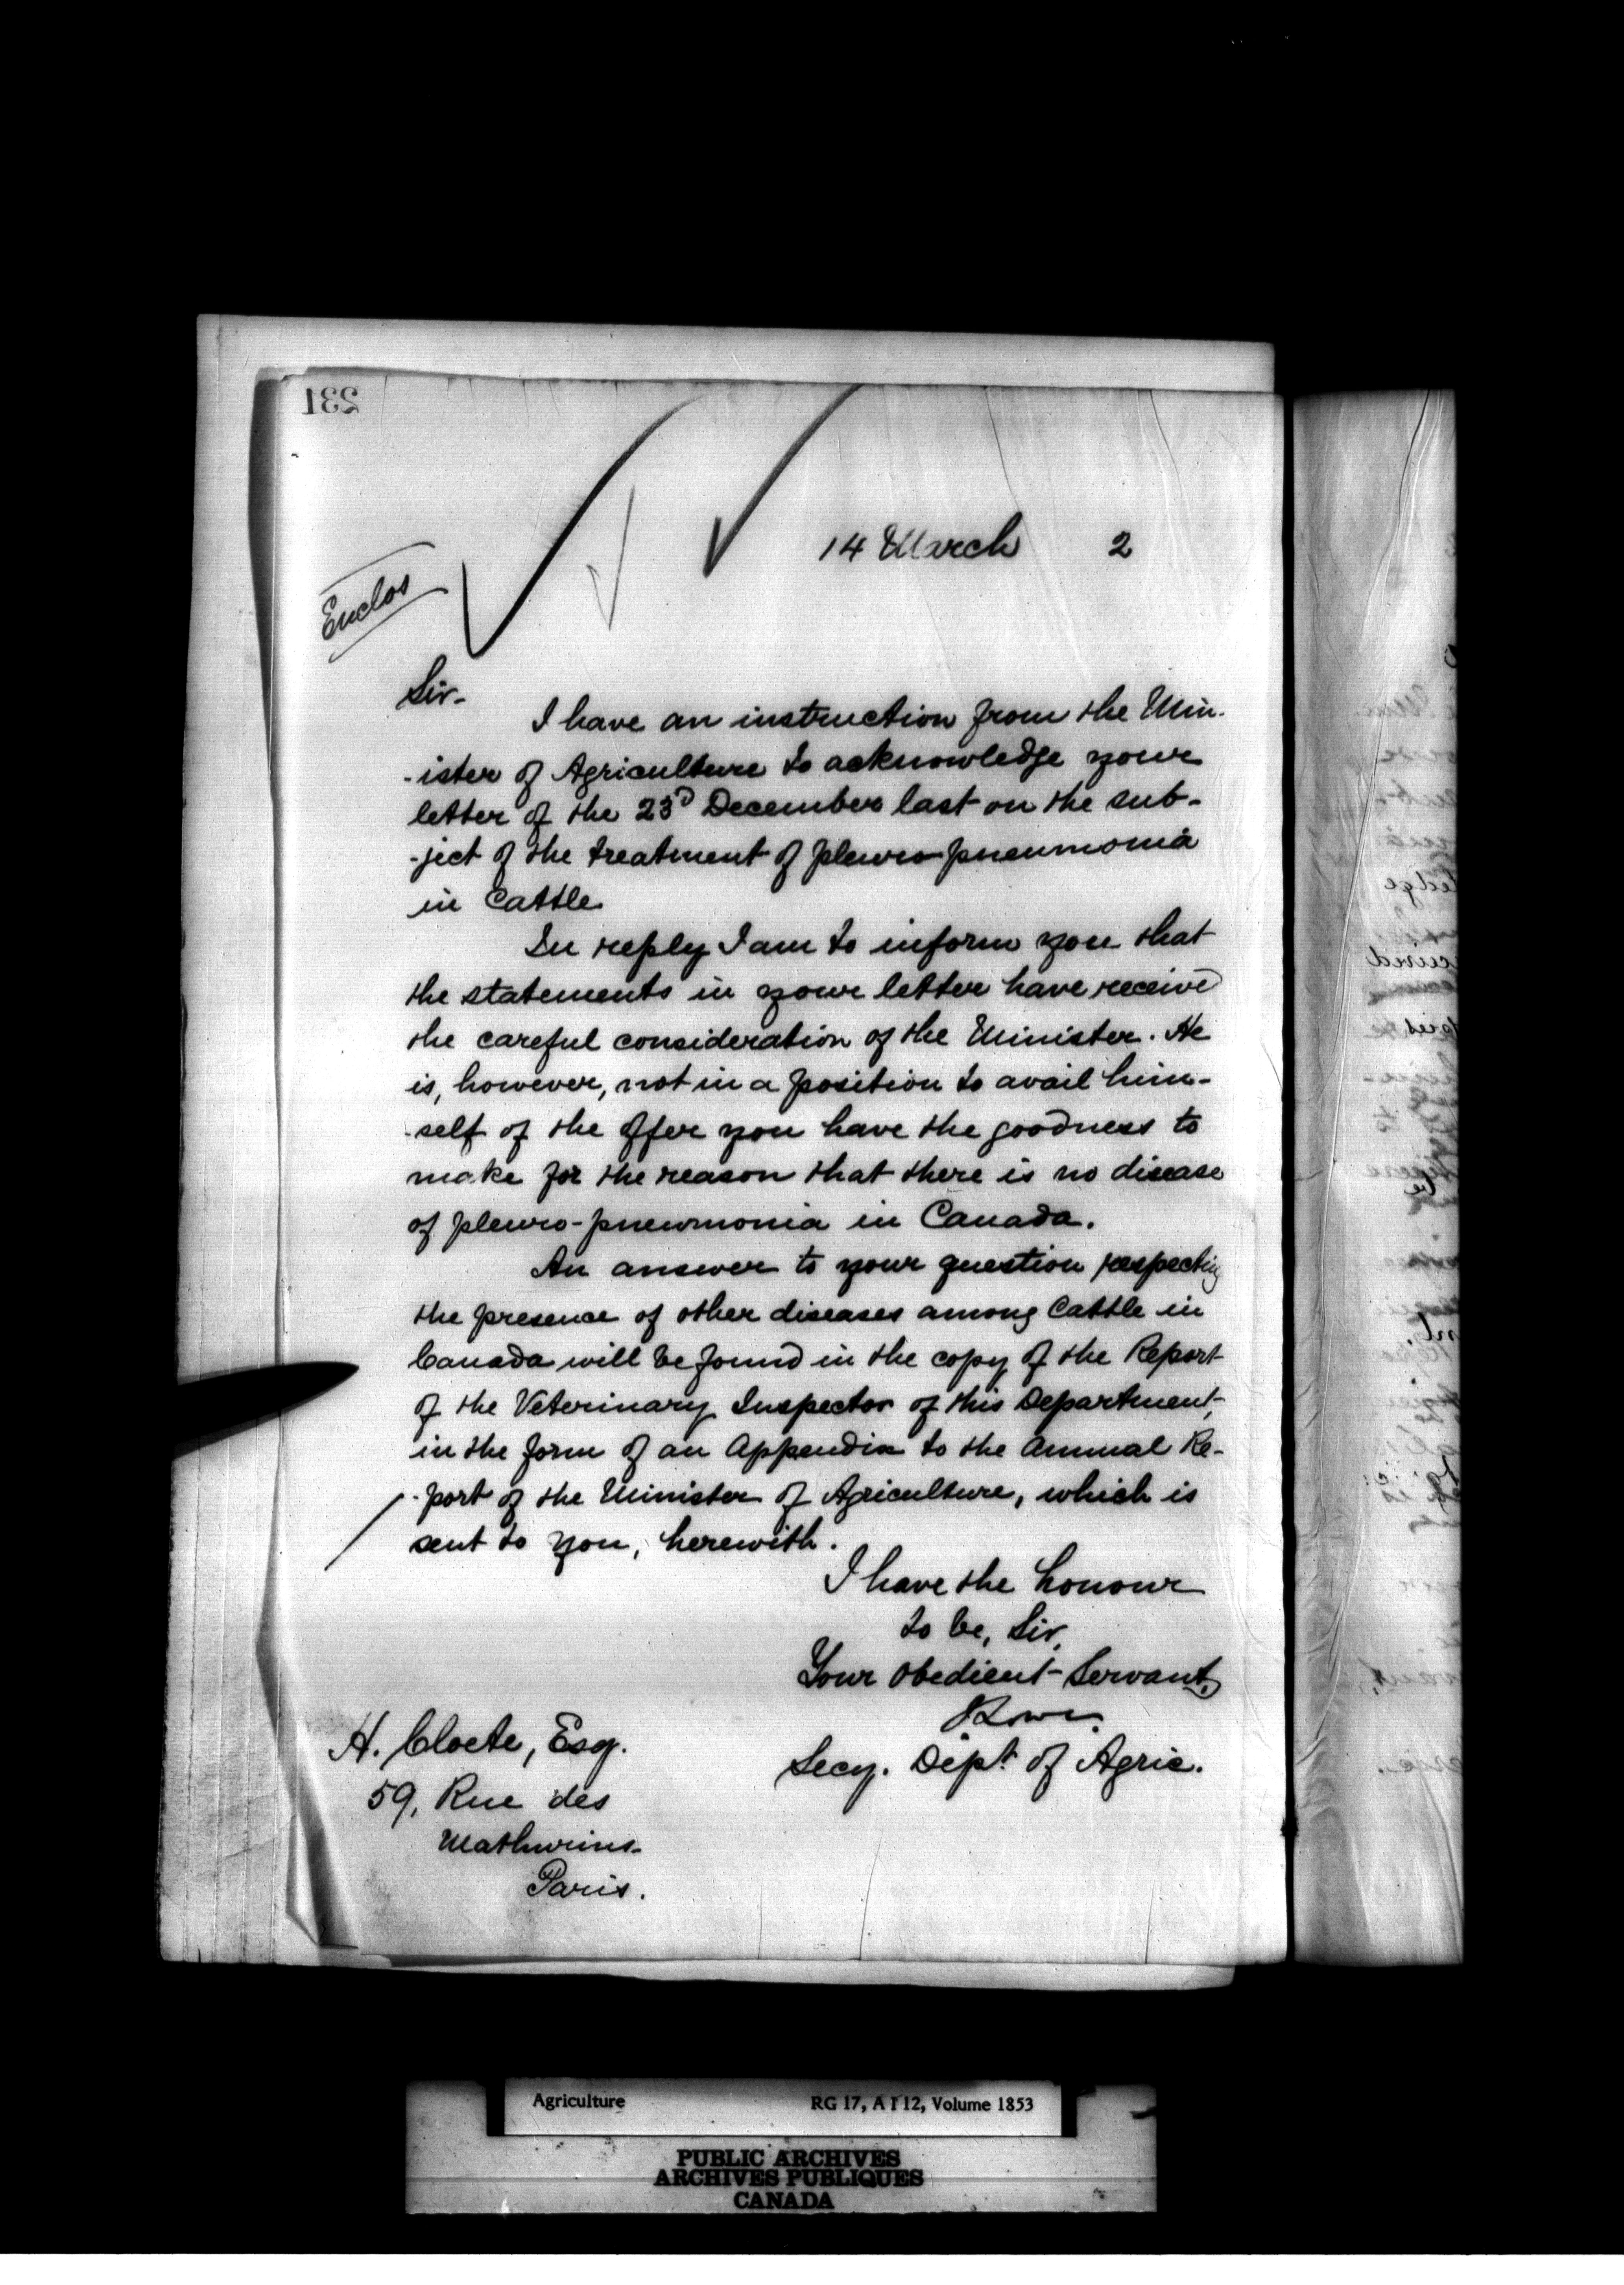 231
14 March 2
Enclos
Sir-
I have an instruction from the Min-
-ister of Agriculture to acknowledge your
letter of the 23d December last on the sub-
-ject of the treatment of pleuro pneumonia
in Cattle.
In reply I am to inform you that
the statements in your letter have received
the careful consideration of the Minister. He
is, however, not in a position to avail him-
-self of the offer you have the goodness to
make for the reason that there is no disease
of pleuro-pneumonia in Canada.
An answer to your question respecting
the presence of other diseases among Cattle in
Canada will be found in the copy of the Report
of the Veterinary Inspector of this Department,
in the form of an Appendix to the Annual Re-
-port of the Minister of Agriculture, which is
sent to you, herewith.
I have the honour
to be, Sir,
Your obedient Servant,
Secy. Dept. of Agric.
H. Cloete, Esq.
59, Rue des
Mathurins-
Paris.
Agriculture RG 17, A I 12, Volume 1853
PUBLIC ARCHIVES
ARCHIVES PUBLIQUES
CANADA